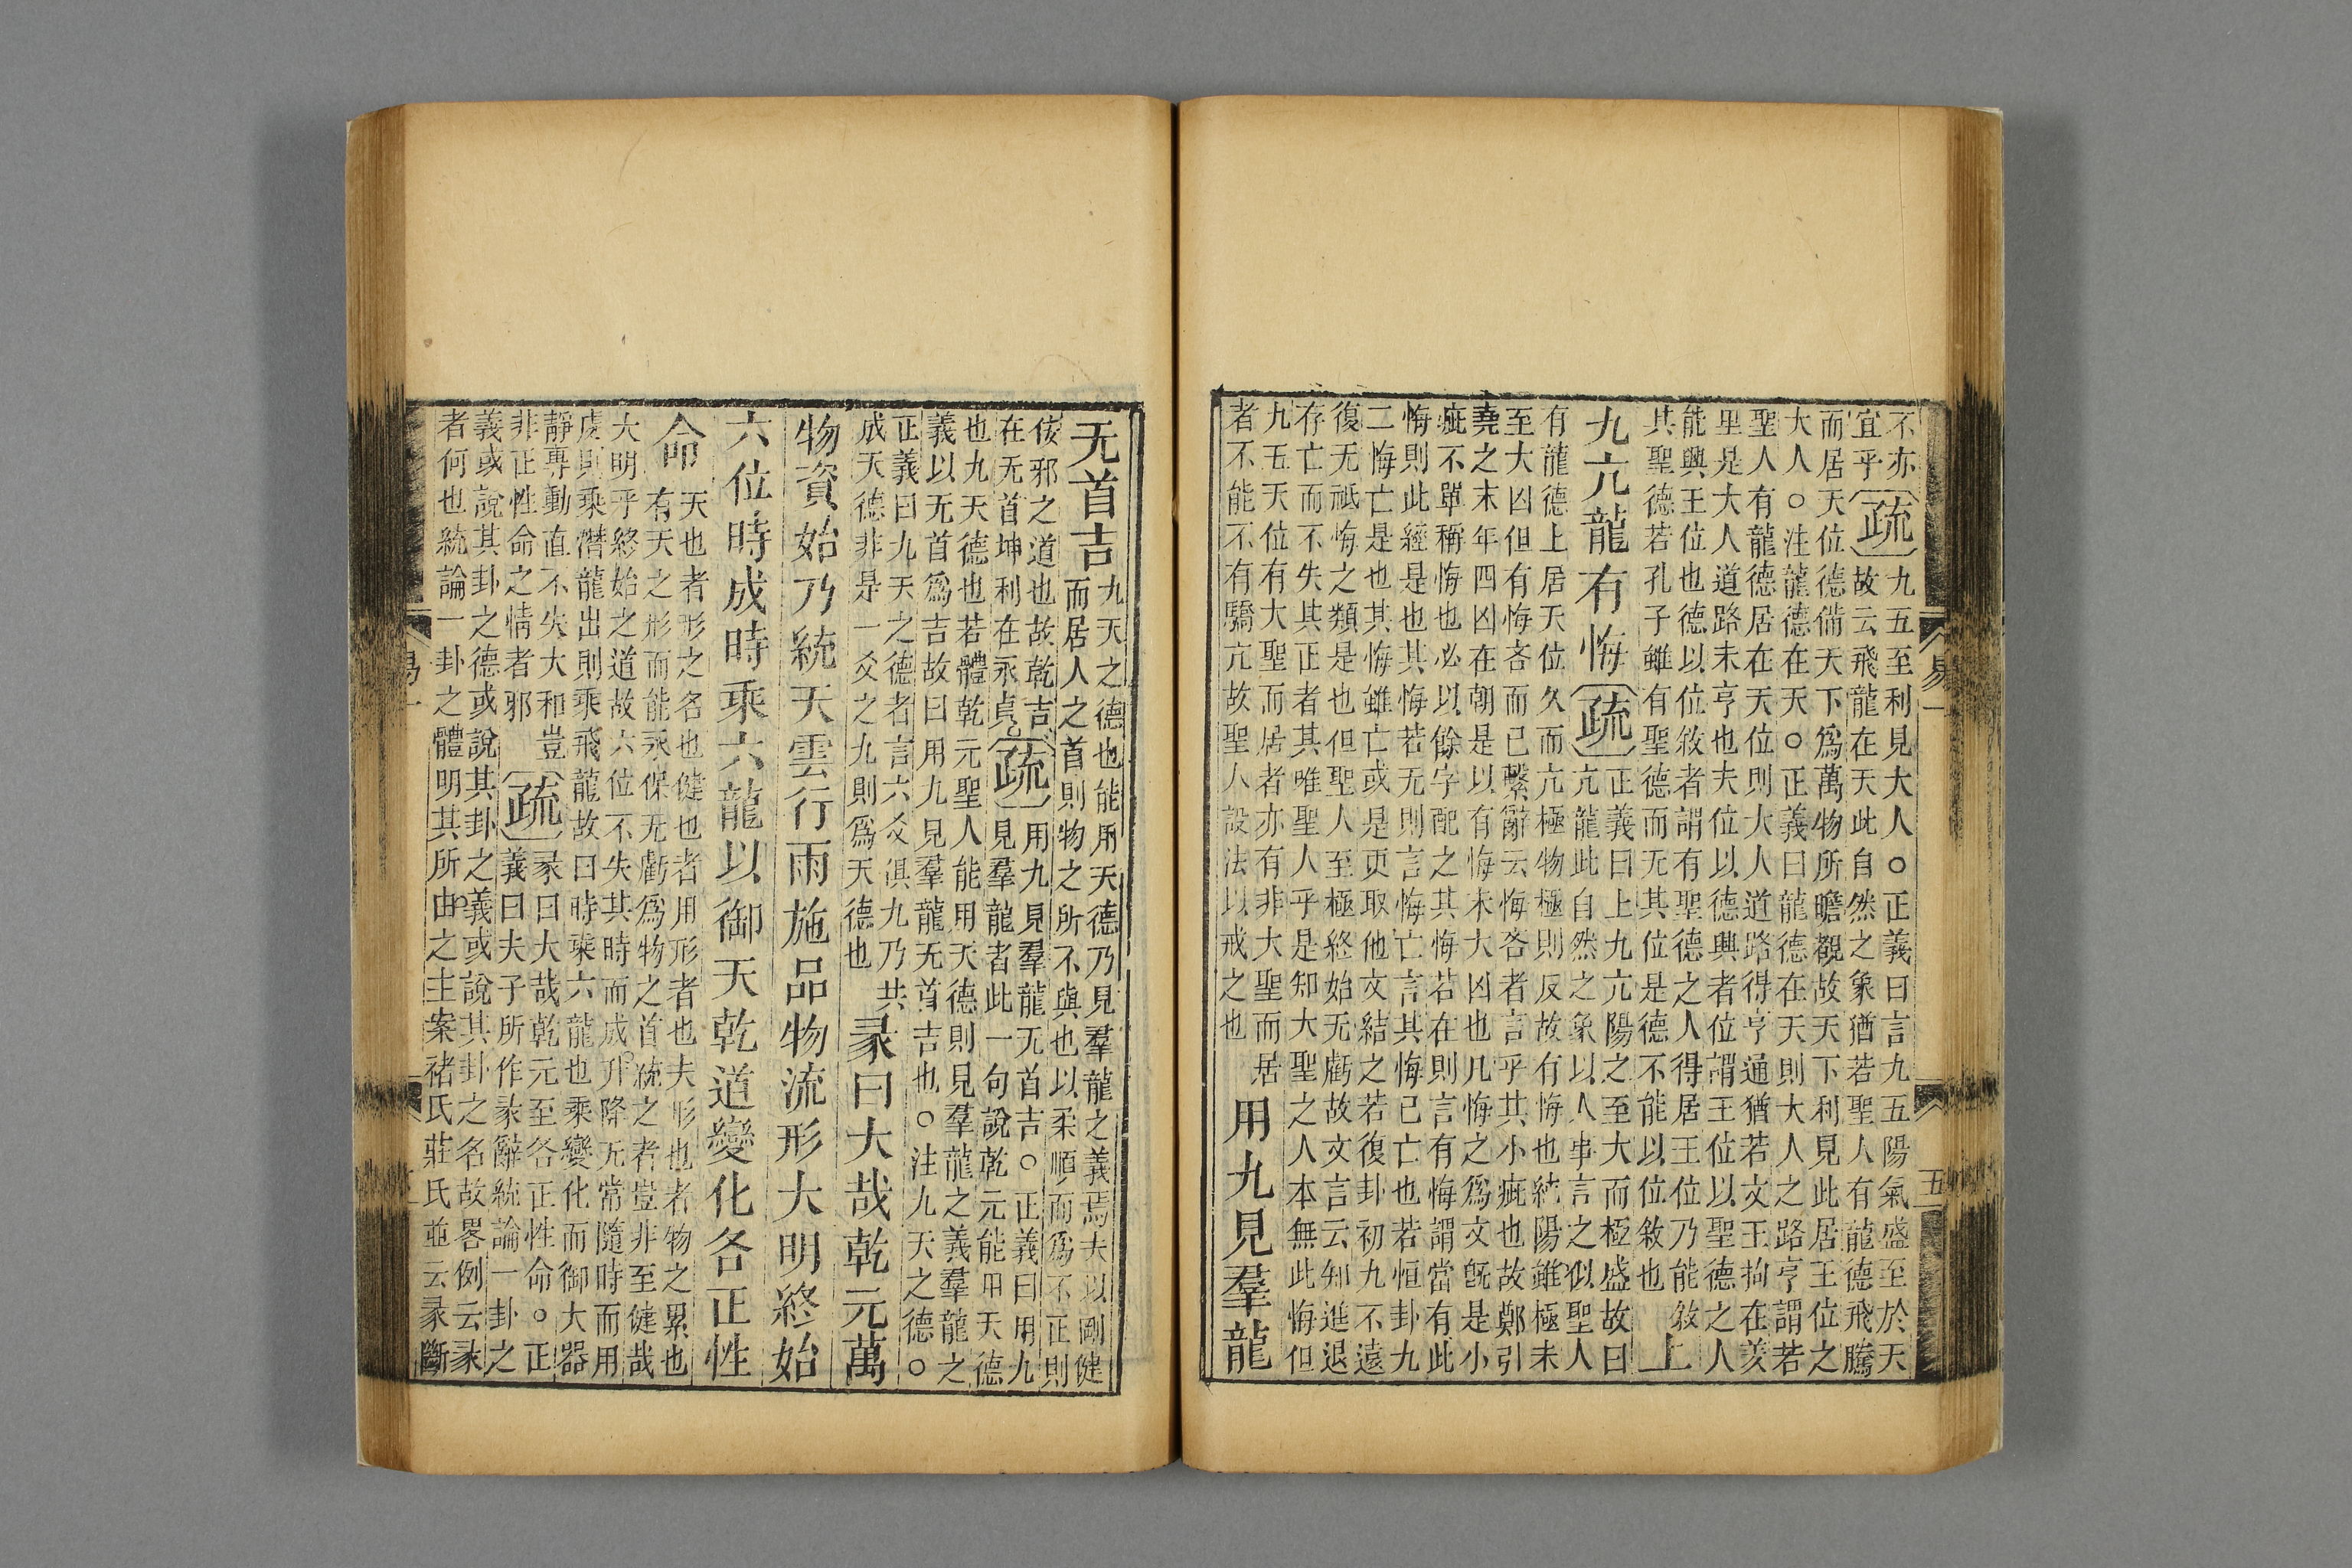 不亦
宜乎
疏
九五至利見大人○正義曰言九五陽氣盛至於天
故云飛龍在天此自然之象猶若聖人有龍德飛騰
而居天位德備天下爲萬物所瞻覩故天下利見此居王位之
大人○注龍德在天○正義曰龍德在天則大人之路亨謂若
聖人有龍德居在天位則大人道路得亨通猶若文王拘在羑
里是大人道路未亨也夫位以德興者位謂王位以聖德之人
能興王位也德以位敘者謂有聖德之人得居王位乃能敘
其聖德若孔子雖有聖德而无其位是德不能以位敘也
上
九亢龍有悔
疏
正義曰上九亢陽之至大而極盛故曰
亢龍此自然之象以人事言之似聖人
有龍德上居天位久而亢極物極則反故有悔也純陽雖極未
至大凶但有悔吝而已繫辭云悔吝者言乎其小疵也故鄭引
堯之末年四凶在朝是以有悔未大凶也凡悔之爲文旣是小
疵不單稱悔也必以餘字配之其悔若在則言有悔謂當有此
悔則此經是也其悔若无則言悔亡言其悔已亡也若恒卦九
二悔亡是也其悔雖亡或是更取他文結之若復卦初九不遠
復无祗悔之類是也但聖人至極終始无虧故文言云知進退
存亡而不失其正者其唯聖人乎是知大聖之人本無此悔但
九五天位有大聖而居者亦有非大聖而居
者不能不有驕亢故聖人設法以戒之也
用九見羣龍
易一
五
无首吉
九天之德也能用天德乃見羣龍之義焉夫以剛健
而居人之首則物之所不與也以柔順而爲不正則
佞邪之道也故乾吉
在无首坤利在永貞
疏
用九見羣龍无首吉○正義曰用九
見羣龍者此一句說乾元能用天德
也九天德也若體乾元聖人能用天德則見羣龍之義羣龍之
義以无首爲吉故曰用九見羣龍无首吉也○注九天之德○
正義曰九天之德者言六爻俱九乃共
成天德非是一爻之九則爲天德也
彖曰大哉乾元萬
物資始乃統天雲行雨施品物流形大明終始
六位時成時乘六龍以御天乾道變化各正性
命
天也者形之名也健也者用形者也夫形也者物之累也
有天之形而能永保无虧爲物之首統之者豈非至健哉
大明乎終始之道故六位不失其時而成升降无常隨時而用
處則乘潛龍出則乘飛龍故曰時乘六龍也乘變化而御大器
靜專動直不失大和豈
非正性命之情者邪
疏
彖曰大哉乾元至各正性命○正
義曰夫子所作彖辭統論一卦之
義或說其卦之德或說其卦之義或說其卦之名故畧例云彖
者何也統論一卦之體明其所由之主案褚氏莊氏並云彖斷